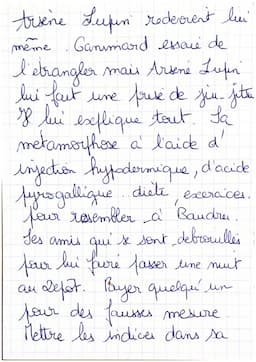 Arsène Lupin redevient lui
même. Ganimard essaie de
l'étrangler mais Arsène Lupin
lui fait une prise de jiu-jitsu
Il lui explique tout. Sa
metamorphose à l'aide d'
injection hypodermique, d'acide
pyrogallique diète, exercices.
pour ressembler à Baudru.
Ses amis qui se sont debrouillés
pour lui faire passer une nuit
au Depôt. Payer quelqu'un
pour des fausses mesure.
Mettre les indices dans sa